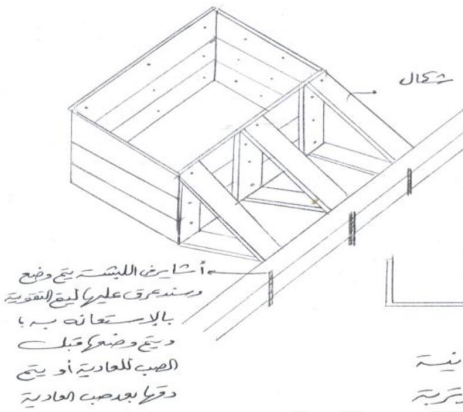 شكال
أشاير اللبشة يتم وضع
وسند عرق عليها ليتم التقوية
بالاستعانه به
ويتم وضعها قبل
الصب للعادية أو يتم
دقها بعد صب العادية